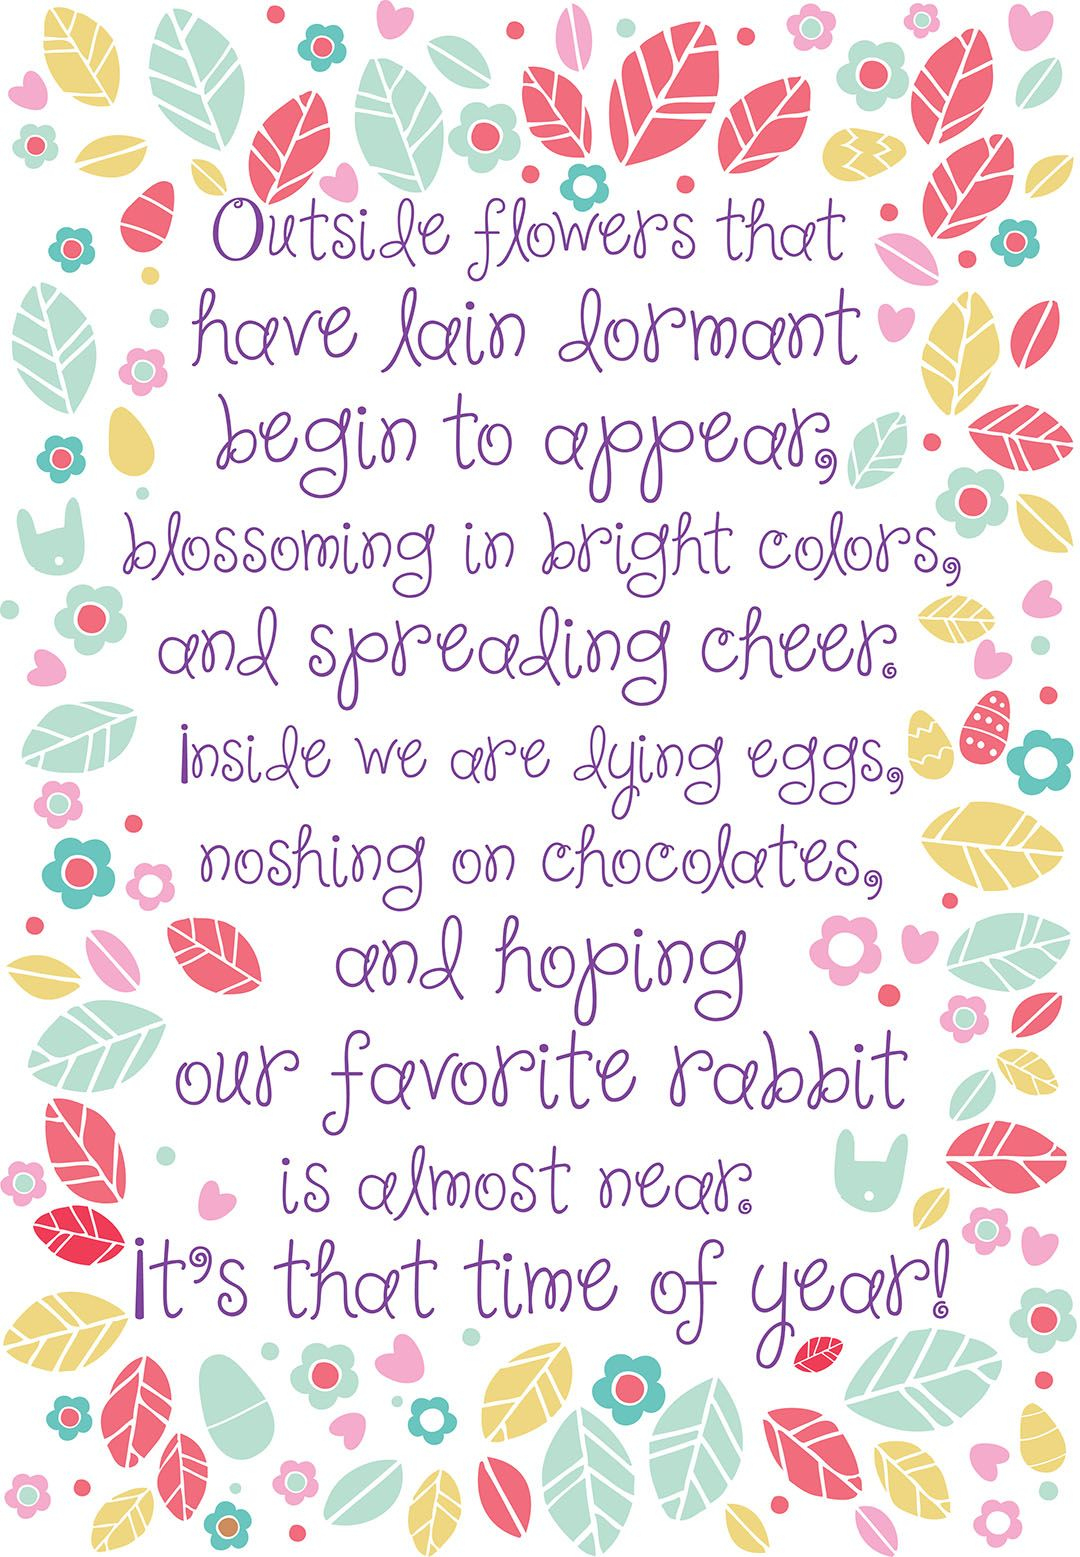 Outside flowers that
have lain dormant
begin to appear,
blossoming in bright colors,
and spreading cheer.
Inside we are dying eggs,
noshing on chocolates,
and hoping
our favorite rabbit
is almost near.
It's that time of year!